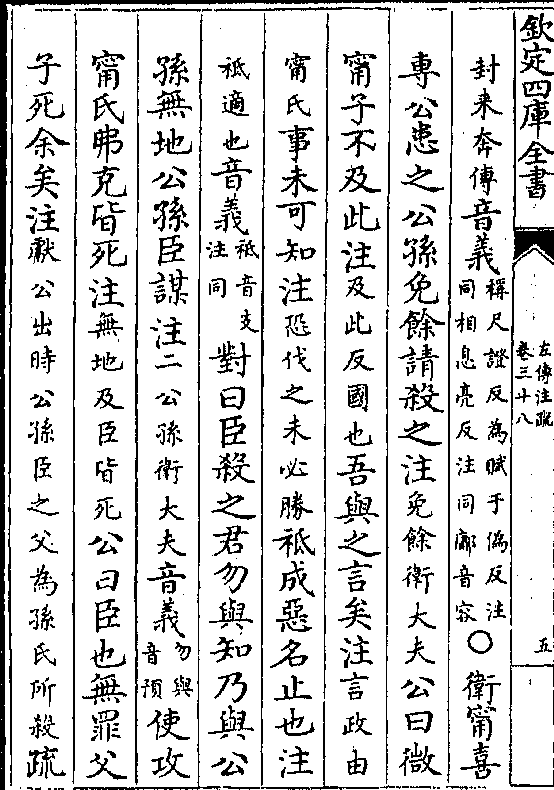 欽定四庫全書
左傳注疏
卷三十八
五
封来奔傳音義稱尺證反為賦于偽反注
同相息亮反注同鄘音容○衛甯喜
專公患之公孫免餘請殺之注免餘衛大夫公曰微
甯子不及此注及此反國也吾與之言矣注言政由
甯氏事未可知注恐伐之未必勝祗成惡名止也注
祗適也音義祗音支
注同對曰臣殺之君勿與知乃與公
孫無地公孫臣謀注二公孫衛大夫音義勿與
音預使攻
甯氏弗克皆死注無地及臣皆死公曰臣也無罪父
子死余矣注獻公出時公孫臣之父為孫氏所殺疏